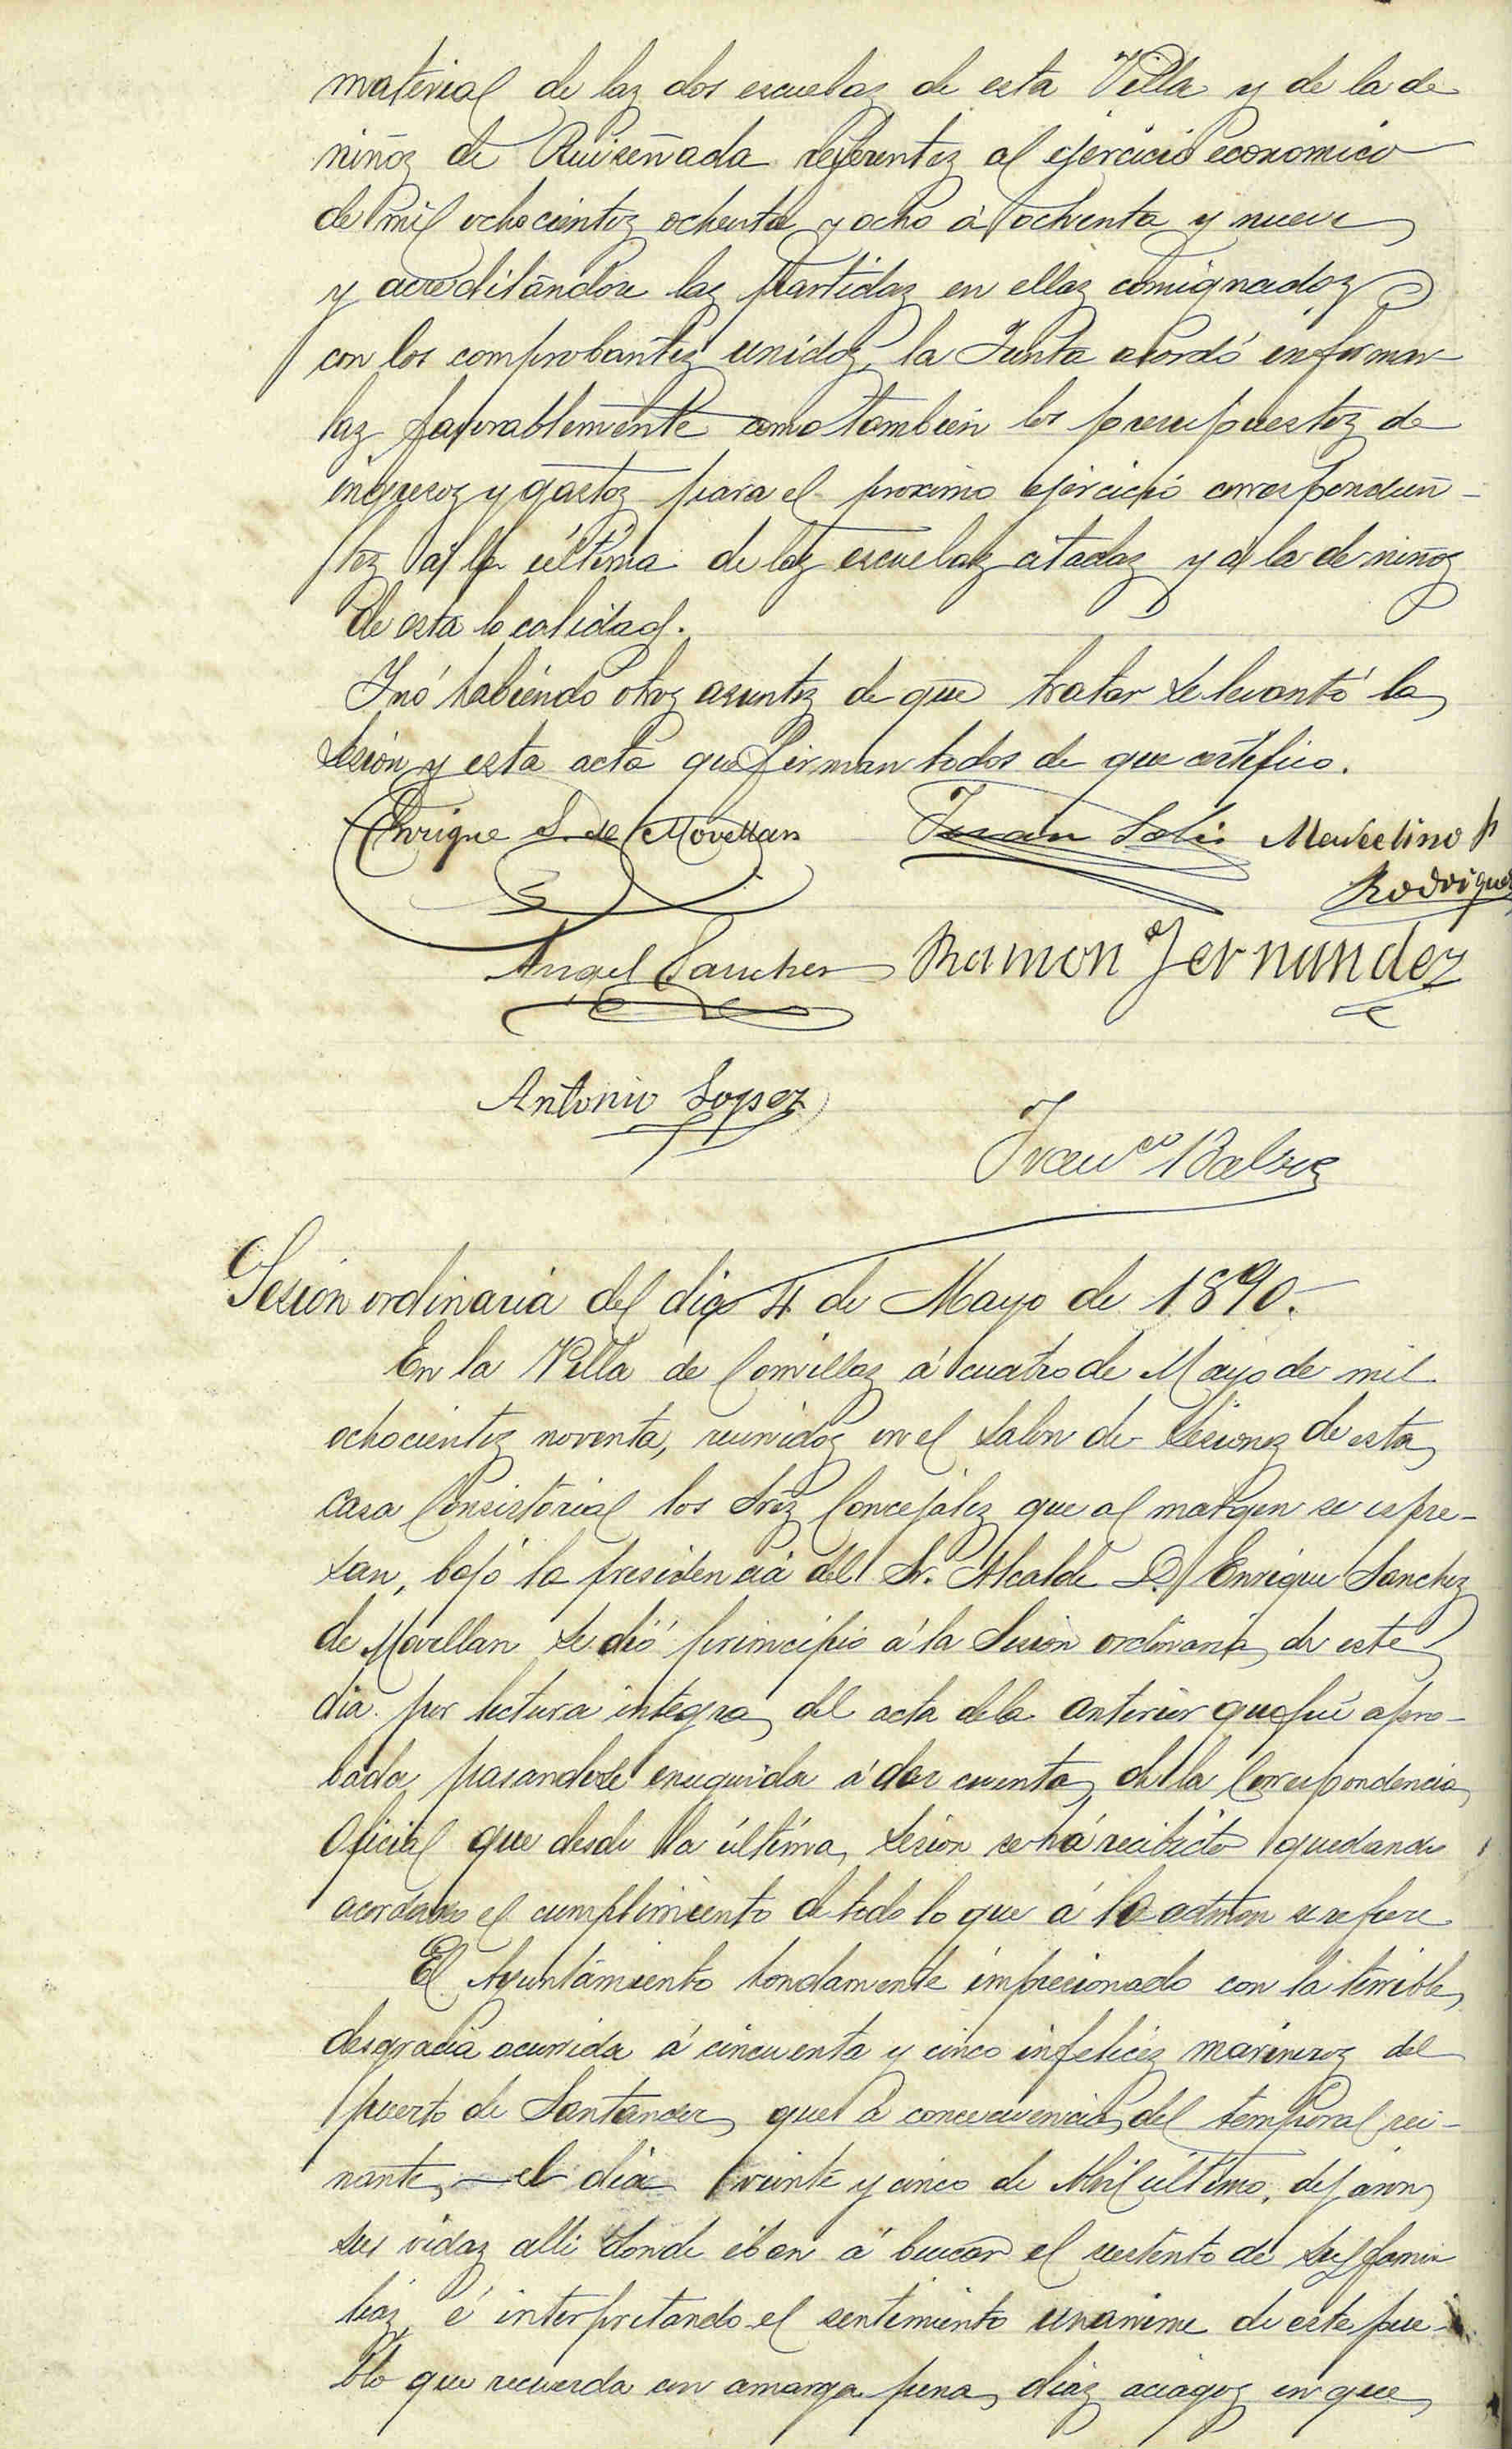 material de las dos escuelas de esta Villa y de la de
niños de Ruiseñada referentes al ejercicio economico
de mil ochocientos ochenta y ocho á ochenta y nueve
y acreditándose las partidas en ellas consignadas
con los comprobantes unidos, la Junta acordó informar-
las favorablemente como tambien los presupuestos de
ingresos y gastos para el proximo ejercicio correspondien-
tes a la última de las escuelas citadas y a la de niños
de esta localidad.
Y no habiendo otros asuntos de que tratar se levantó la
sesión y esta acta que firman todos de que certifico.
Enrique S. de Movellan Juan Solis Marcelino
Rodriguez
Angel Sanchez Ramon Fernandez
Antonio Lopez
Franco
Sesión ordinaria del dia 4 de Mayo de 1890.
En la Villa de Comillas á cuatro de Mayo de mil
ochocientos noventa, reunidos en el salon de sesiones de esta
casa Consistorial los Sres Concejales que al margen se espre-
san, bajo la presidencia del Sr. Alcalde D. Enrique Sanchez
de Movellan se dió principio á la Sesion ordinaria de este
dia por lectura integra del acta de la anterior que fué apro-
bada, pasandose enseguida á dar cuenta de la Correspondencia
Oficial que desde la última sesion se há recibido quedando
acordado el cumplimiento de todo lo que á la admon se refiere
El Ayuntamiento hondamente impresionado con la terrible
desgracia ocurrida á cincuenta y cinco infelices marineros del
puerto de Santander que a concecuencia del temporal rei-
nante, el dia veinte y cinco de Abril último, dejaron
sus vidas alli donde iban á buscar el sustento de sus fami
lias, é interpretando el sentimiento unanime de este pue-
blo que recuerda con amarga pena dias aciagos en que